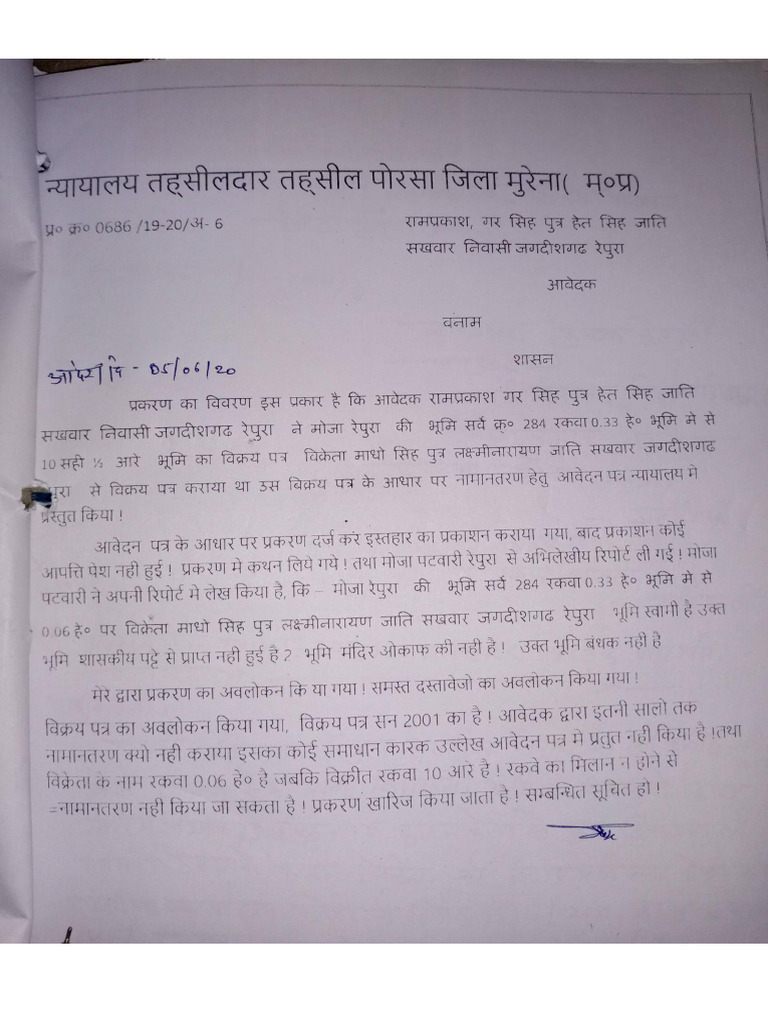 न्यायालय तह्सीलदार तह्सील पोरसा जिला मुरेना( म्०प्र)
प्र० क्र० 0686 /19-20/अ- 6
रामप्रकाश, गर सिह पुत्र हेत सिह जाति
सखवार निवासी जगदीशगढ रेपुरा
आवेदक
वनाम
शासन
आदेश दि - 05/06/20
प्रकरण का विवरण इस प्रकार है कि आवेदक रामप्रकाश गर सिह पुत्र हेत सिह जाति
सखवार निवासी जगदीशगढ रेपुरा ने मोजा रेपुरा की भूमि सर्वे क्र्० 284 रकवा 0.33 हे० भूमि मे से
10 सही ½ आरे भूमि का विक्रय पत्र विक्रेता माधो सिह पुत्र लक्ष्मीनारायण जाति सखवार जगदीशगढ
रेपुरा से विक्रय पत्र कराया था उस बिक्रय पत्र के आधार पर नामानतरण हेतु आवेदन पत्र न्यायालय मे
प्रस्तुत किया !
आवेदन पत्र के आधार पर प्रकरण दर्ज कर इस्तहार का प्रकाशन कराया गया, बाद प्रकाशन कोई
आपत्ति पेश नही हुई ! प्रकरण मे कथन लिये गये ! तथा मोजा पटवारी रेपुरा से अभिलेखीय रिपोर्ट ली गई ! मोजा
पटवारी ने अपनी रिपोर्ट मे लेख किया है, कि – मोजा रेपुरा की भूमि सर्वे 284 रकवा 0.33 हे० भूमि मे से
0.06 हे० पर विक्रेता माधो सिह पुत्र लक्ष्मीनारायण जाति सखवार जगदीशगढ रेपुरा भूमि स्वामी है उक्त
भूमि शासकीय पट्टे से प्राप्त नही हुई है 2 भूमि मंदिर ओकाफ की नही है ! उक्त भूमि बंधक नही है
मेरे द्वारा प्रकरण का अवलोकन कि या गया ! समस्त दस्तावेजो का अवलोकन किया गया !
विक्रय पत्र का अवलोकन किया गया, विक्रय पत्र सन 2001 का है ! आवेदक द्वारा इतनी सालो तक
नामानतरण क्यो नही कराया इसका कोई समाधान कारक उल्लेख आवेदन पत्र मे प्रतुत नही किया है !तथा
विक्रेता के नाम रकवा 0.06 हे० है जबकि विक्रीत रकवा 10 आरे है ! रकवे का मिलान न होने से
=नामानतरण नही किया जा सकता है ! प्रकरण खारिज किया जाता है ! सम्बन्धित सूचित हो !